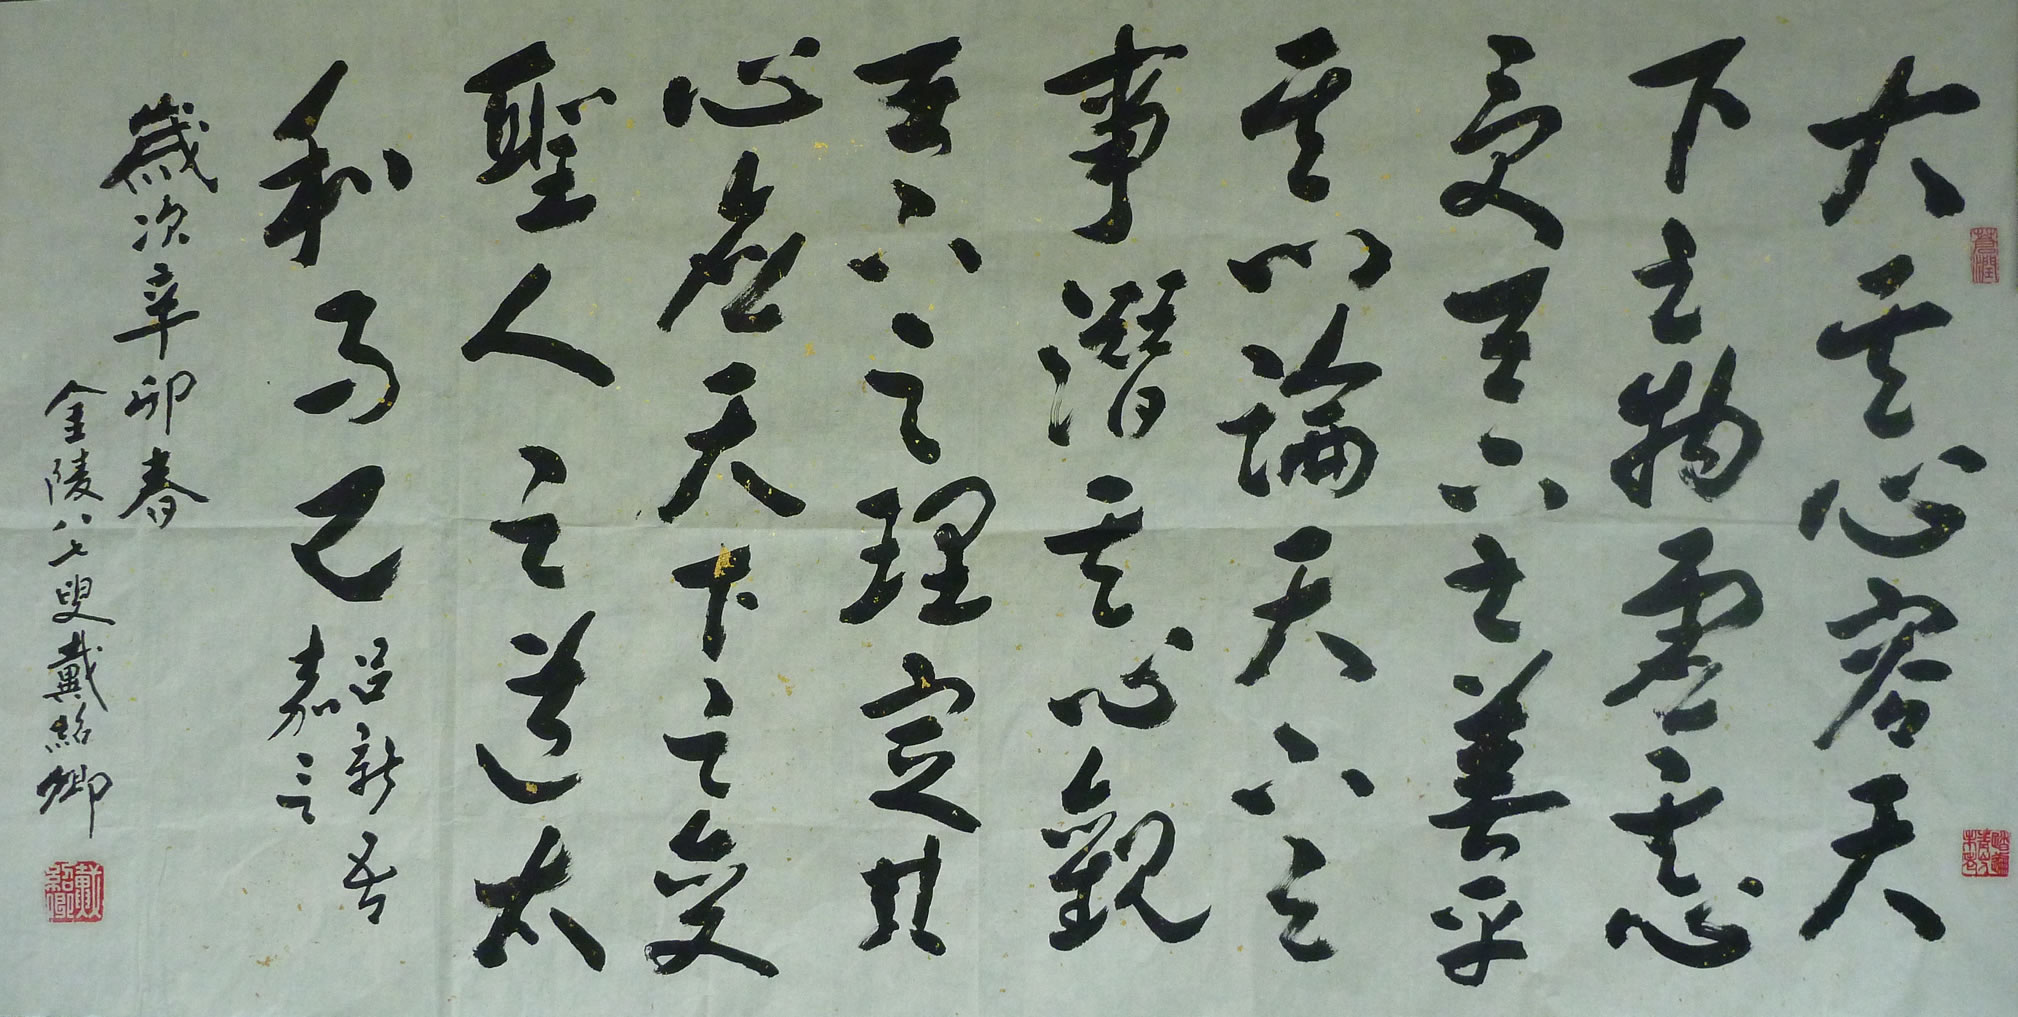 大其心容天
下之物虛其心
受天下之善平
其心論天下之
事潛其心觀
天下之理定其
心應天下之變
聖人之道太
和而已
呂新吾
嘉言
歲次辛卯春
金陵八七叟戴紹卿
戴紹卿